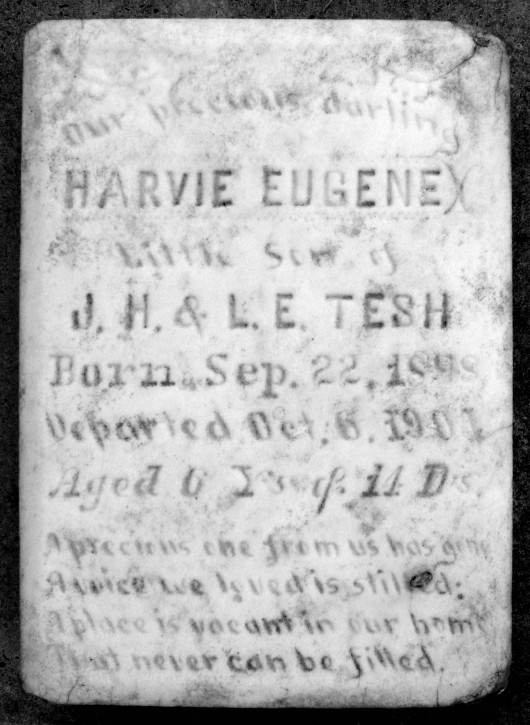 Our precious darling
HARVIE EUGENE
Little Son of
J. H. & L. E. TESH
Born Sep. 22, 1898
Departed Oct. 6,
Aged 6 Ys & 14 Ds.
A precious one from us has gone
A voice we loved is stilled;
A place is vacant in our home
That never can be filled.